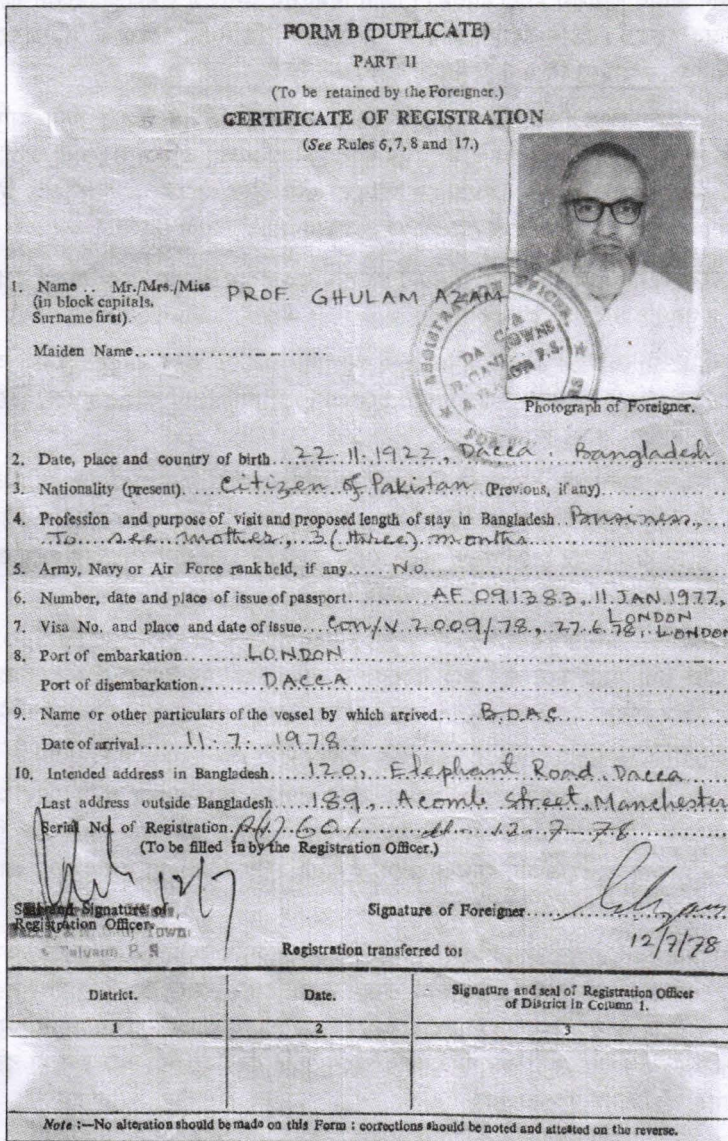 FORM B (DUPLICATE)
PART II
(To be retained by the Foreigner.)
CERTIFICATE OF REGISTRATION
(See Rules 6, 7, 8 and 17.)
1. Name .. Mr./Mrs./Miss PROF. GHULAM AZAM
(in block capitals.
Surname first).
Maiden Name
Photograph of Foreigner.
2. Date, place and country of birth 22.11.1922, Dacca. Bangladesh
3. Nationality (present). Citizen of Pakistan (Previous, if any)
4. Profession and purpose of visit and proposed length of stay in Bangladesh Business,
To see mother, 3 (three) months
5. Army, Navy or Air Force rank held, if any No
6. Number, date and place of issue of passport AF 091383, 11 JAN. 1977,
LONDON
7. Visa No. and place and date of issue Con/V 2009/78, 27.6.78, LONDON
8. Port of embarkation LONDON
Port of disembarkation DACCA
9. Name or other particulars of the vessel by which arrived
Date of arrival 11.7.1978
10. Intended address in Bangladesh 120, Elephant Road, Dacca
Last address outside Bangladesh 189, Acomb Street, Manchester
Serial No. of Registration 12-7-78
(To be filled in by the Registration Officer.)
12/7
Seal and Signature of
Registration Officer.
Signature of Foreigner
12/7/78
Registration transferred to:
District. Date. Signature and seal of Registration Officer
of District in Column 1.
1 2 3
Note :—No alteration should be made on this Form : corrections should be noted and attested on the reverse.